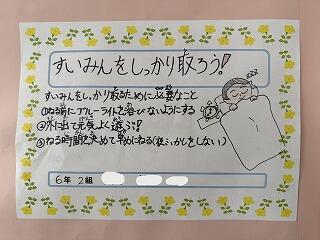 すいみんをしっかり取ろう!
zzz
すいみんをしっかり取るために必要なこと
①ねる前にブルーライトを浴びないようにする
②外に出て元気よく遊ぶ!!
③ねる時間を決めて早めにねる(夜ふかしをしない)
6年 2組